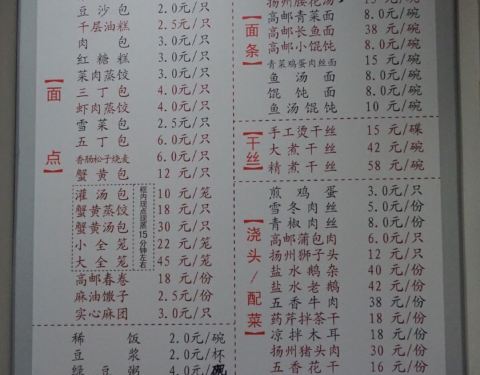 豆沙包 2.0元/只
千层油糕 2.5元/只
肉包 3.0元/只
红糖糕 3.0元/只
菜肉蒸饺 3.0元/只
三丁包 4.0元/只
虾肉蒸饺 4.0元/只
雪菜包 2.5元/只
五丁包 6.0元/只
香肠松子烧麦 6.0元/只
蟹黄包 12元/只
【面点】
灌汤包 10元/笼
蟹黄蒸饺 18元/只
蟹黄汤包 30元/只
小全笼 22元/笼
大全笼 45元/笼
框内现点现蒸15分钟左右
高邮春卷 18元/份
麻油馓子 2.5元/份
实心麻团 3.0元/只
稀饭 2.0元/碗
豆浆 2.0元/杯
绿豆粥 4.0元/碗
扬州腰花汤
高邮青菜面 8.0元/碗
高邮长鱼面 38元/碗
高邮小馄饨 8.0元/碗
青菜鸡蛋肉丝面 15元/碗
鱼汤面 8.0元/碗
馄饨面 8.0元/碗
鱼汤馄饨 10元/碗
【面条】
手工烫干丝 15元/碟
大煮干丝 42元/碗
精煮干丝 58元/碗
【干丝】
煎鸡蛋 3.0元/只
雪冬肉丝 5.0元/份
青椒肉丝 5.0元/份
高邮蒲包肉 6.0元/只
扬州狮子头 12元/只
盐水鹅杂 40元/份
盐水老鹅 42元/份
五香牛肉 38元/份
药芹拌茶干 18元/份
凉拌木耳 18元/份
扬州猪头肉 30元/份
五香花干 16元/份
【浇头/配菜】